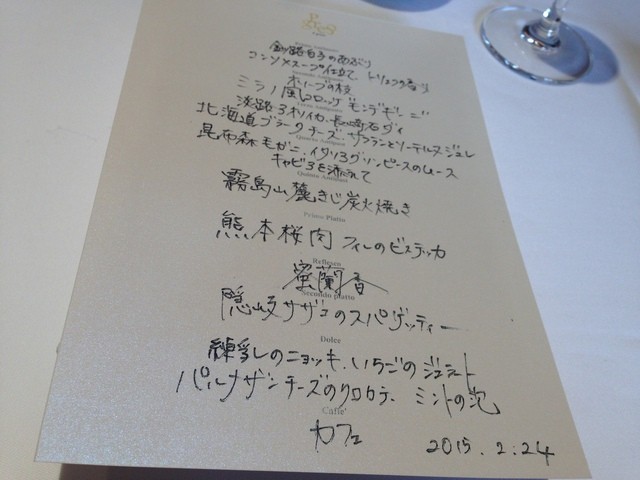 釧路白子のあぶり
コンソメスープ仕立て トリュフの香り
オリーブの枝
ミラノ風コロッケ モンデギーニ
淡路アオリイカ、長崎石ダイ
北海道ブラータチーズ、サフランとソーテルヌジュレ
昆布森毛ガニ、イタリアグリンピースのムース
キャビアを添えて
Quinto Antipasto
霧島山麓きじ炭火焼き
Primo Piatto
熊本桜肉 フィレのビステッカ
Reflesco
蜜蘭香
Secondo piatto
隠岐サザエのスパゲッティー
Dolce
練乳のニョッキ、いちごのジェラート
パルナザンチーズのクロカンテ ミントの泡
Caffe'
カフェ
2015.2.24